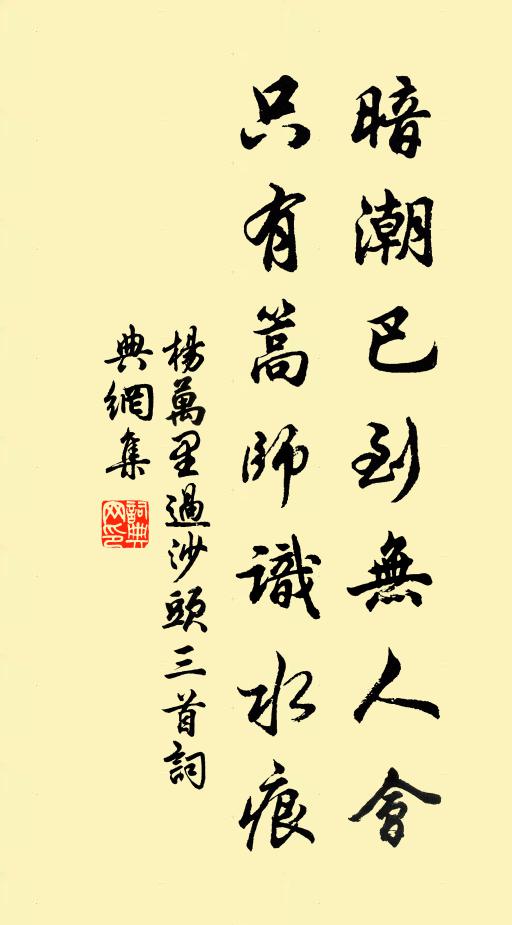 暗潮已到無人會
只有蒿師識水痕
楊萬里過沙頭三首詞
典網集
詞典
网印